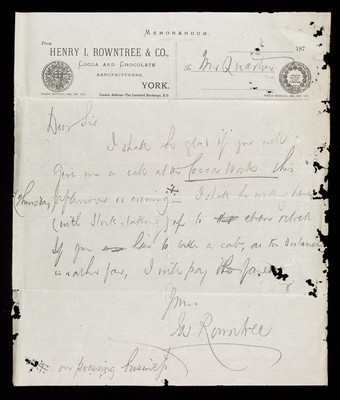 MEMORANDUM.
From
187
HENRY I. ROWNTREE & CO.,
COCOA AND CHOCOLATE
MANUFACTURERS,
YORK.
To Mr
Dear Sir
I shall be glad if you will
give me a call at the Cocoa Works this
(Thursday) afternoon or evening. I shall be working here
(with Stock-taking) up to eleven o'clock
If you like to take a cab, as the distance
is rather far, I will pay the fare
Yours
Rowntree
on pressing business